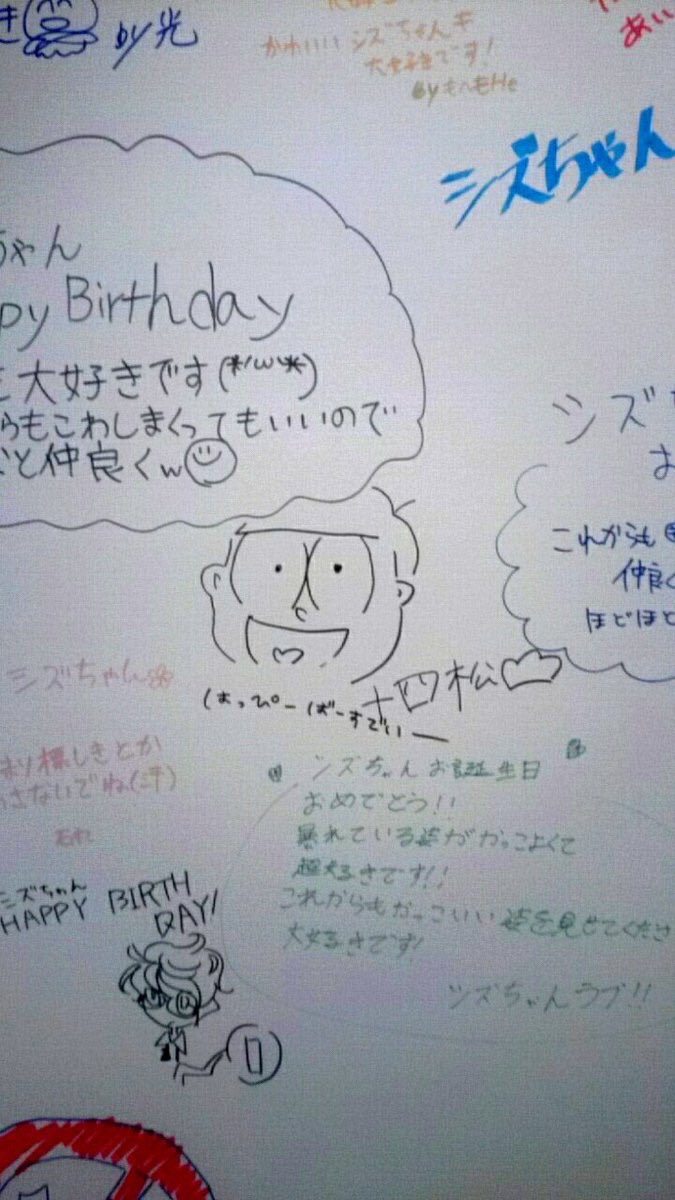 by 光
かわいいシズちゃんキ
大好きです!
ByもへもHe
あい
シズちゃん
ちゃん
py Birthday
大好きです(*'ω'*)
らもこわしまくってもいいので
と仲良くw
シズ
お
これからも
仲良く
ほどほど
十四松
はっぴーばーすでいー
シズちゃん
り標しきとか
さないでね(汗)
シズちゃんお誕生日
おめでとう!!
暴れている姿がかっこよくて
超大好きです!!
これからもかっこいい姿を見せてくださ
大好きです!
シズちゃんラブ!!
シズちゃん
HAPPY BIRTH
DAY!